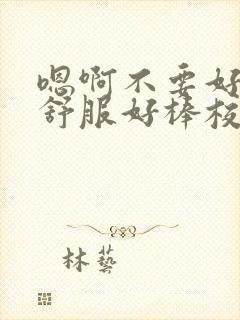 嗯啊不要好
舒服好棒板
林艺